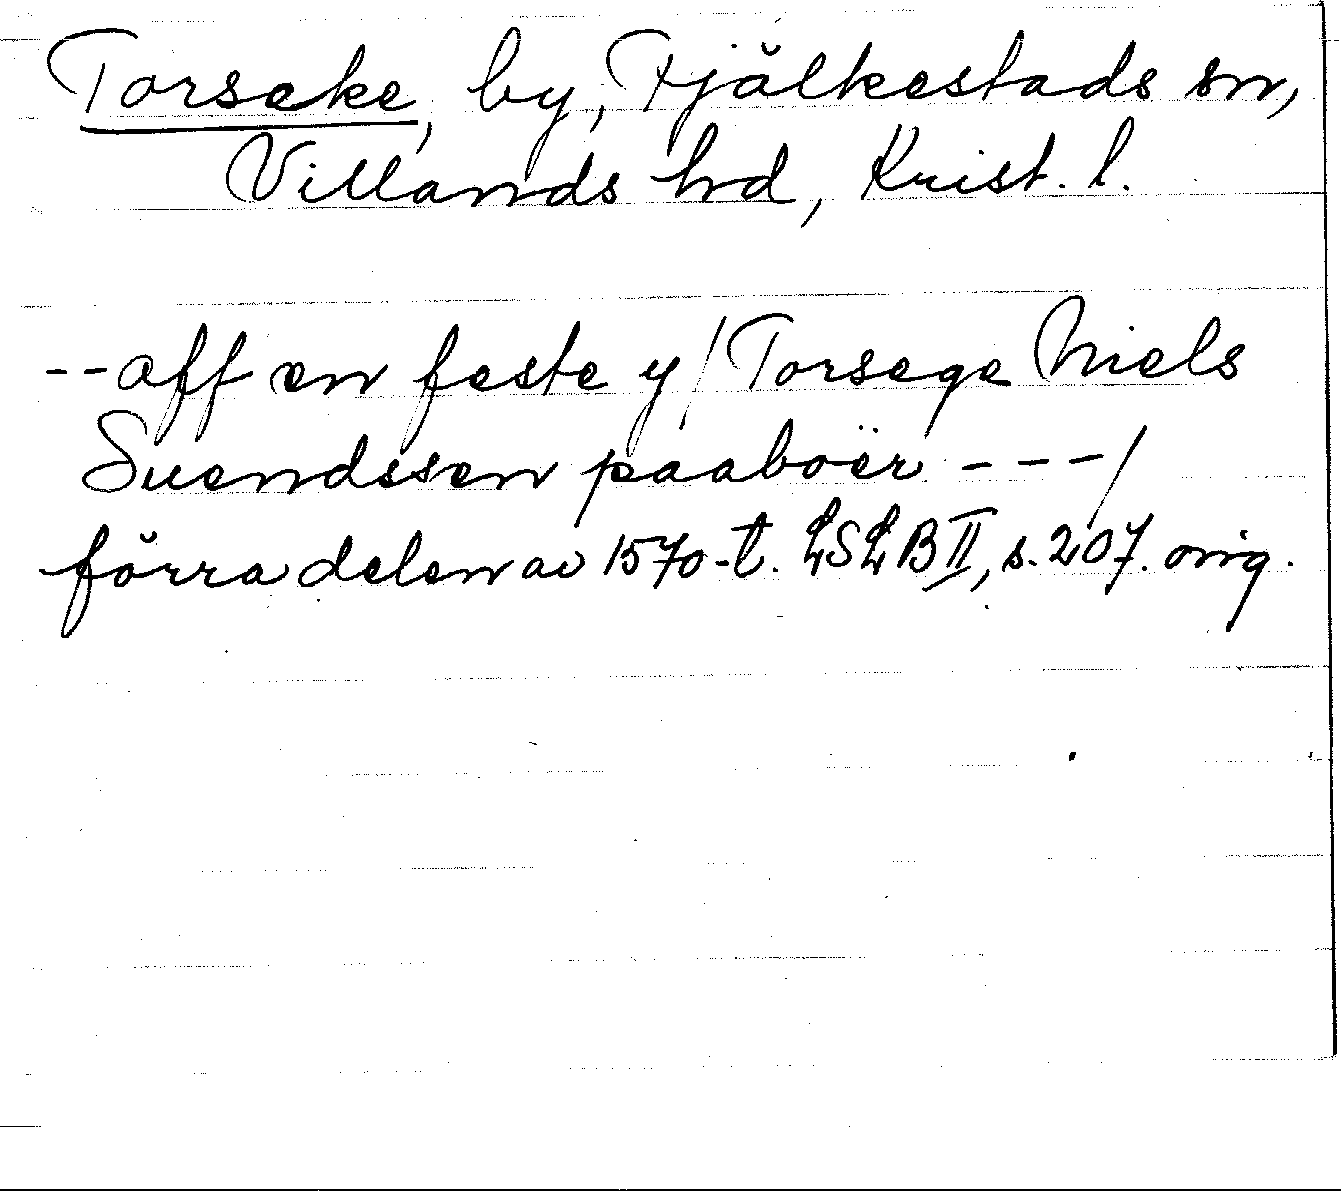 Torseke, by, Fjälkestads sn,
Villands hd, Krist. l.
--aff en feste y / Torsege Niels
Suendssen paaboër --- /
förra delen av 1570-t. LSLB II, s. 207. orig.